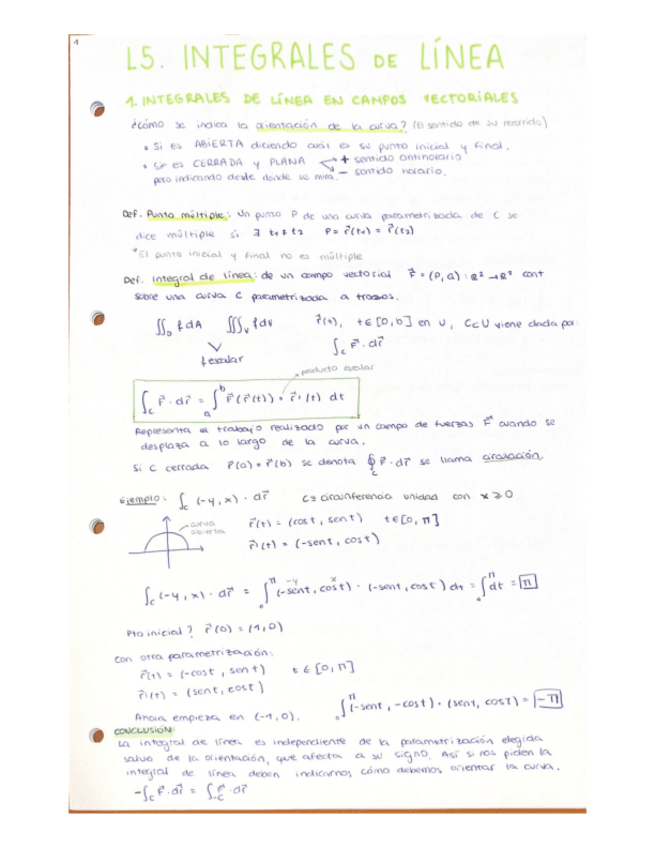 1
L5. INTEGRALES DE LÍNEA
1. INTEGRALES DE LÍNEA EN CAMPOS VECTORIALES
¿Cómo se indica la orientación de la curva? (El sentido de su recorrido)
• Si es ABIERTA diciendo cuál es su punto inicial y final.
• Si es CERRADA y PLANA + sentido antihorario
- sentido horario.
pero indicando desde dónde se mira.
Def. Punto múltiple: Un punto P de una curva parametrizada de C se
dice múltiple si ∃ t₁≠t₂ P = r⃗(t₁) = r⃗(t₂)
*El punto inicial y final no es múltiple
Def. Integral de línea: de un campo vectorial F⃗ = (P, Q) : ℝ² → ℝ² cont
sobre una curva C parametrizada a trozos.
∬_D f dA ∭_V f dV r⃗(t), t∈[a,b] en U, C⊂U viene dada por
f escalar ∫_C F⃗ · dr⃗
producto escalar
∫_C F⃗ · dr⃗ = ∫_a^b F⃗(r⃗(t)) · r⃗'(t) dt
Representa el trabajo realizado por un campo de fuerzas F⃗ cuando se
desplaza a lo largo de la curva.
Si C cerrada r⃗(a) = r⃗(b) se denota ∮_C F⃗ · dr⃗ se llama circulación.
Ejemplo: ∫_C (-y, x) · dr⃗ C = circunferencia unidad con x ⩾ 0
curva
abierta
r⃗(t) = (cost, sent) t∈[0, π]
r⃗'(t) = (-sent, cost)
∫_C (-y, x) · dr⃗ = ∫_0^π (-sent, cost) · (-sent, cost) dt = ∫_0^π dt = π
-y x
Pto inicial? r⃗(0) = (1, 0)
Con otra parametrización:
r⃗(t) = (-cost, sent) t ∈ [0, π]
r⃗'(t) = (sent, cost)
Ahora empieza en (-1, 0). ∫_0^π (-sent, -cost) · (sent, cost) = -π
CONCLUSIÓN
La integral de línea es independiente de la parametrización elegida
salvo de la orientación, que afecta a su signo. Así si nos piden la
integral de línea deben indicarnos cómo debemos orientar la curva.
-∫_C F⃗ · dr⃗ = ∫_-C F⃗ · dr⃗